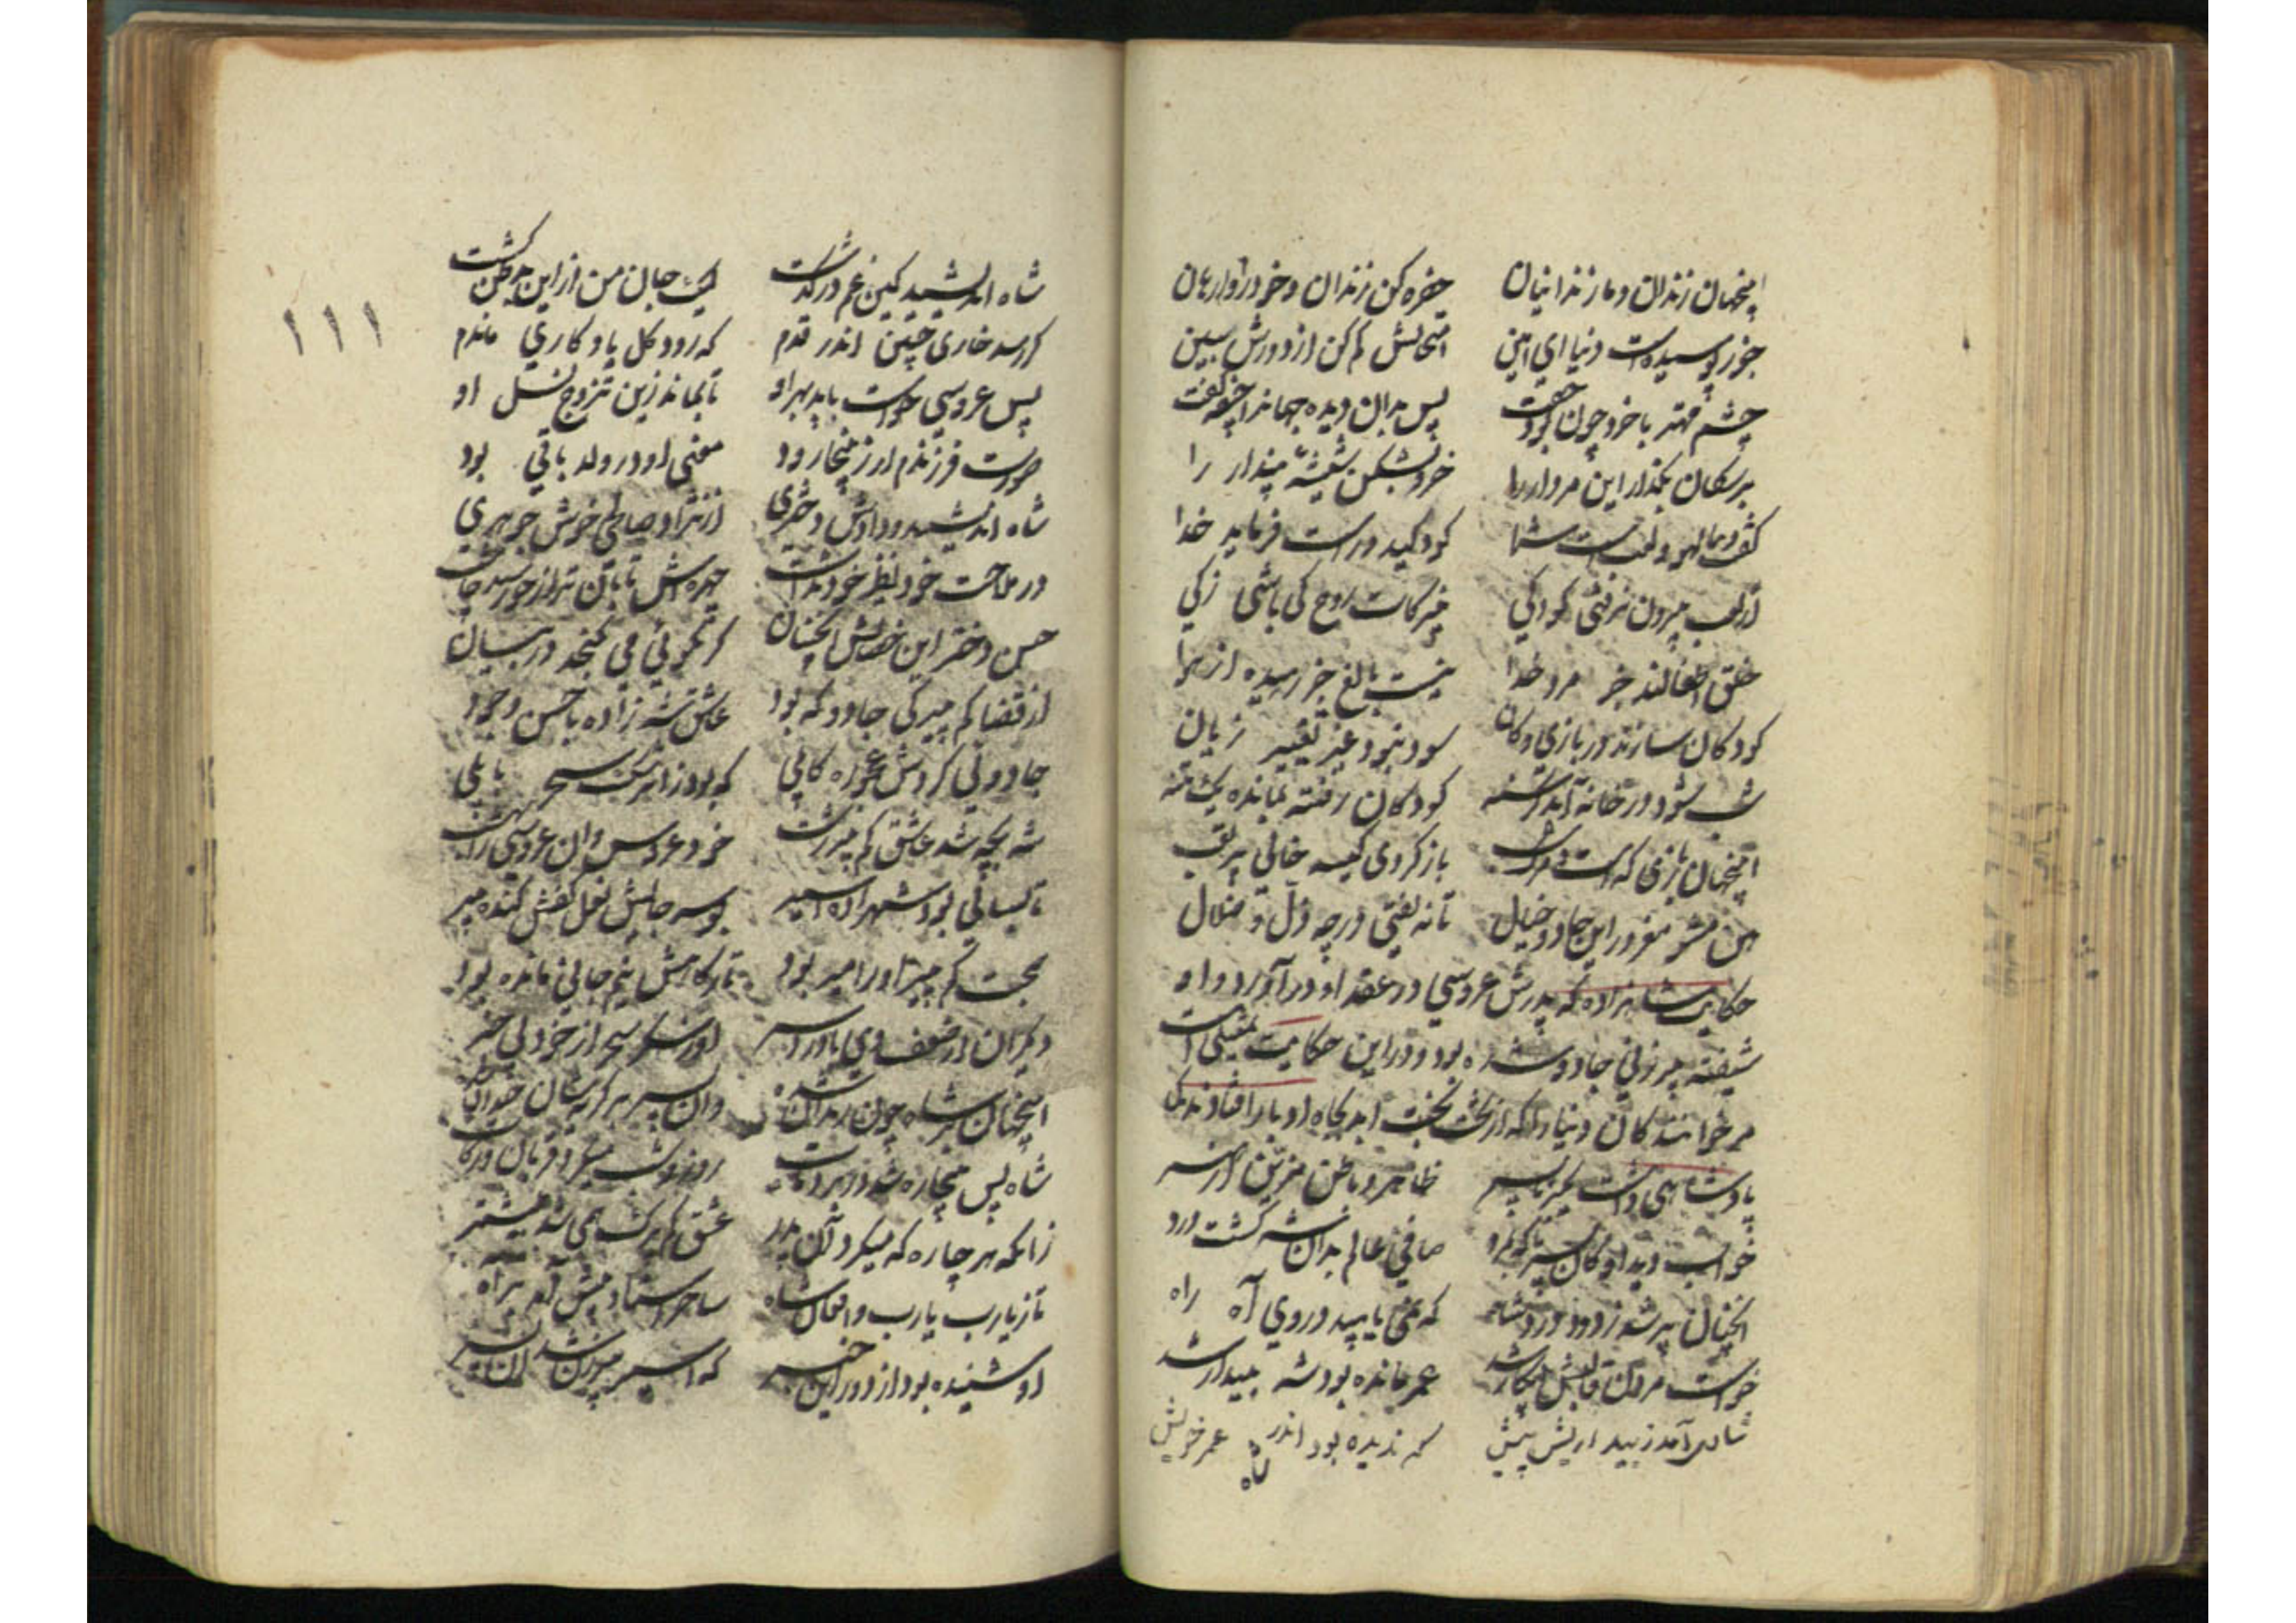 اینجهان زندان و ما زندانیان حفره کن زندان و خود را وارهان
جوز پوسیده است دنیا ای امین امتحانش کم کن از دورش ببین
چشم مهتر با خرد چون بود جفت پس بدان دیده جهانرا جیفه گفت
بر سکان بکذار این مردار را خرد بشکن شیشه پندار را
گفت دنیا لهو و لعب است شما کودکید و راست فرماید خدا
از لعب بیرون نرفتی کودکی روح کی باشی زکی
خلق اطفالند جز مرد خدا نیست بالغ جز رهیده از هوا
کودکان سازند در بازی دکان سود نبود غیر تغییر زیان
شب شود در خانه آید گرسنه کودکان رفته بمانده یک تنه
اینجهان بازی که است و مرگ شب باز کردی کیسه خالی پر تعب
هین مشو مغرور این جادو خیال تا نه افتی در چه ذل و ضلال
حکایت شاهزاده که پدرش عروسی در عقد او در آورد و او
شیفته پیر زنی جادو شده بود و در این حکایت تمثیلی است
مر خوانندکان دنیا را که از تخت بخت ابد بچاه ادبار افتاده‌اند
پادشاهی داشت یک برنا پسر ظاهر و باطن مزین از هنر
خواب دید او کان پسر ناکه بمرد صافی عالم بدان شه کشت درد
آنچنان پر شد ز دود و درد شاه که نمی یابید در وی آه راه
خواست مردن قالبش بیکار شد عمر مانده بود شه بیدار شد
شادی آمد ز بیداریش پیش که ندیده بود اندر عمر خویش
شاه
۱۱۱
شاه اندیشید کین غم در کذشت لیک جان من از این بد ظن کشت
کر رسد خاری چنین اندر قدم که رود کل یادکاری ماندم
پس عروسی خواست باید بهر او تا بماند زین تزوج نسل او
صورت فرزندم ار زینجا رود معنی او در ولد باقی بود
شاه اندیشید و دادش دختری از نژاد صالحی خوش جوهری
در ملاحت خود نظیر خود نداشت چهره‌اش تابان تر از خورشید چاشت
حسن دختر این خصالش آنچنان کز نکوئی می نکنجد در بیان
از قضا کم پیرکی جادو که بود عاشق شه زاده با حسن و جود
جادوئی کردش عجوزه کابلی که بود زان رشک سحر بابلی
شه بچه شد عاشق کم پیر زشت خود عروس و آن عروسی را بهشت
تا بسالی بود شهزاده اسیر بوسه جایش نعل کفش کنده پیر
صحبت کم پیر او را میر بود تا ز کاهش نیم جانی مانده بود
دیکران از ضعف وی با درد سر او ز سکر سحر از خود بی خبر
اینجهان بر شاه چون زندان شده وان پسر بر کریه شان خندان شده
شاه پس بیچاره شد در برد و مات روز و شب میکرد قربان و زکات
زانکه هر چاره که میکرد آن پدر عشق کم پیرک همی شد بیشتر
تا ز یارب یارب و افغان شاه ساحر استاد پیش آمد براه
او شنیده بود از دور این خبر که اسیر پیر زن شد آن پسر